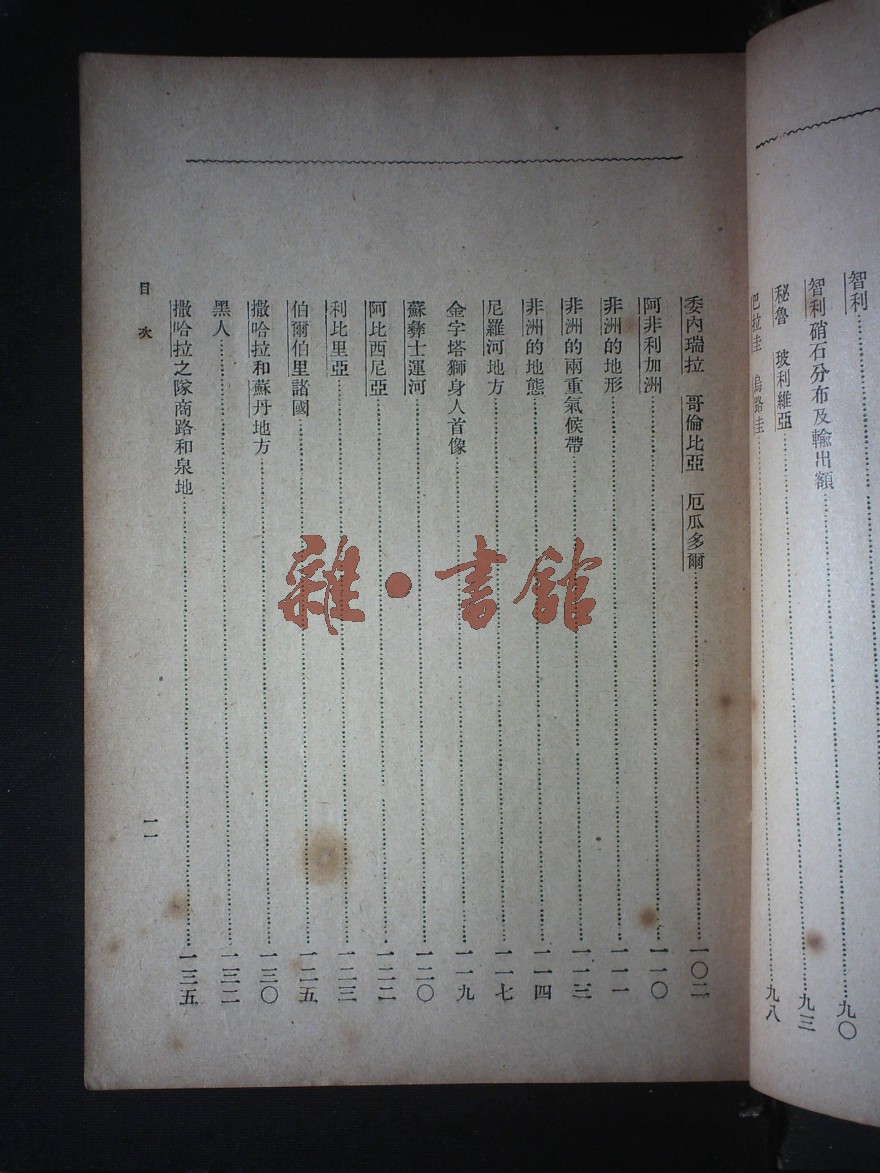 智利……
智利硝石分布及輸出額……九〇
秘魯　玻利維亞……九三
巴拉圭　烏路圭……九八
委內瑞拉　哥倫比亞　厄瓜多爾……一〇二
阿非利加洲……一一〇
非洲的地形……一一一
非洲的兩重氣候帶……一一三
非洲的地態……一一四
尼羅河地方……一一七
金字塔獅身人首像……一一九
蘇彝士運河……一二〇
阿比西尼亞……一二二
利比里亞……一二三
伯爾伯里諸國……一二五
撒哈拉和蘇丹地方……一三〇
黑人……一三二
撒哈拉之隊商路和泉地……一三五
目次
一一
雜・書館